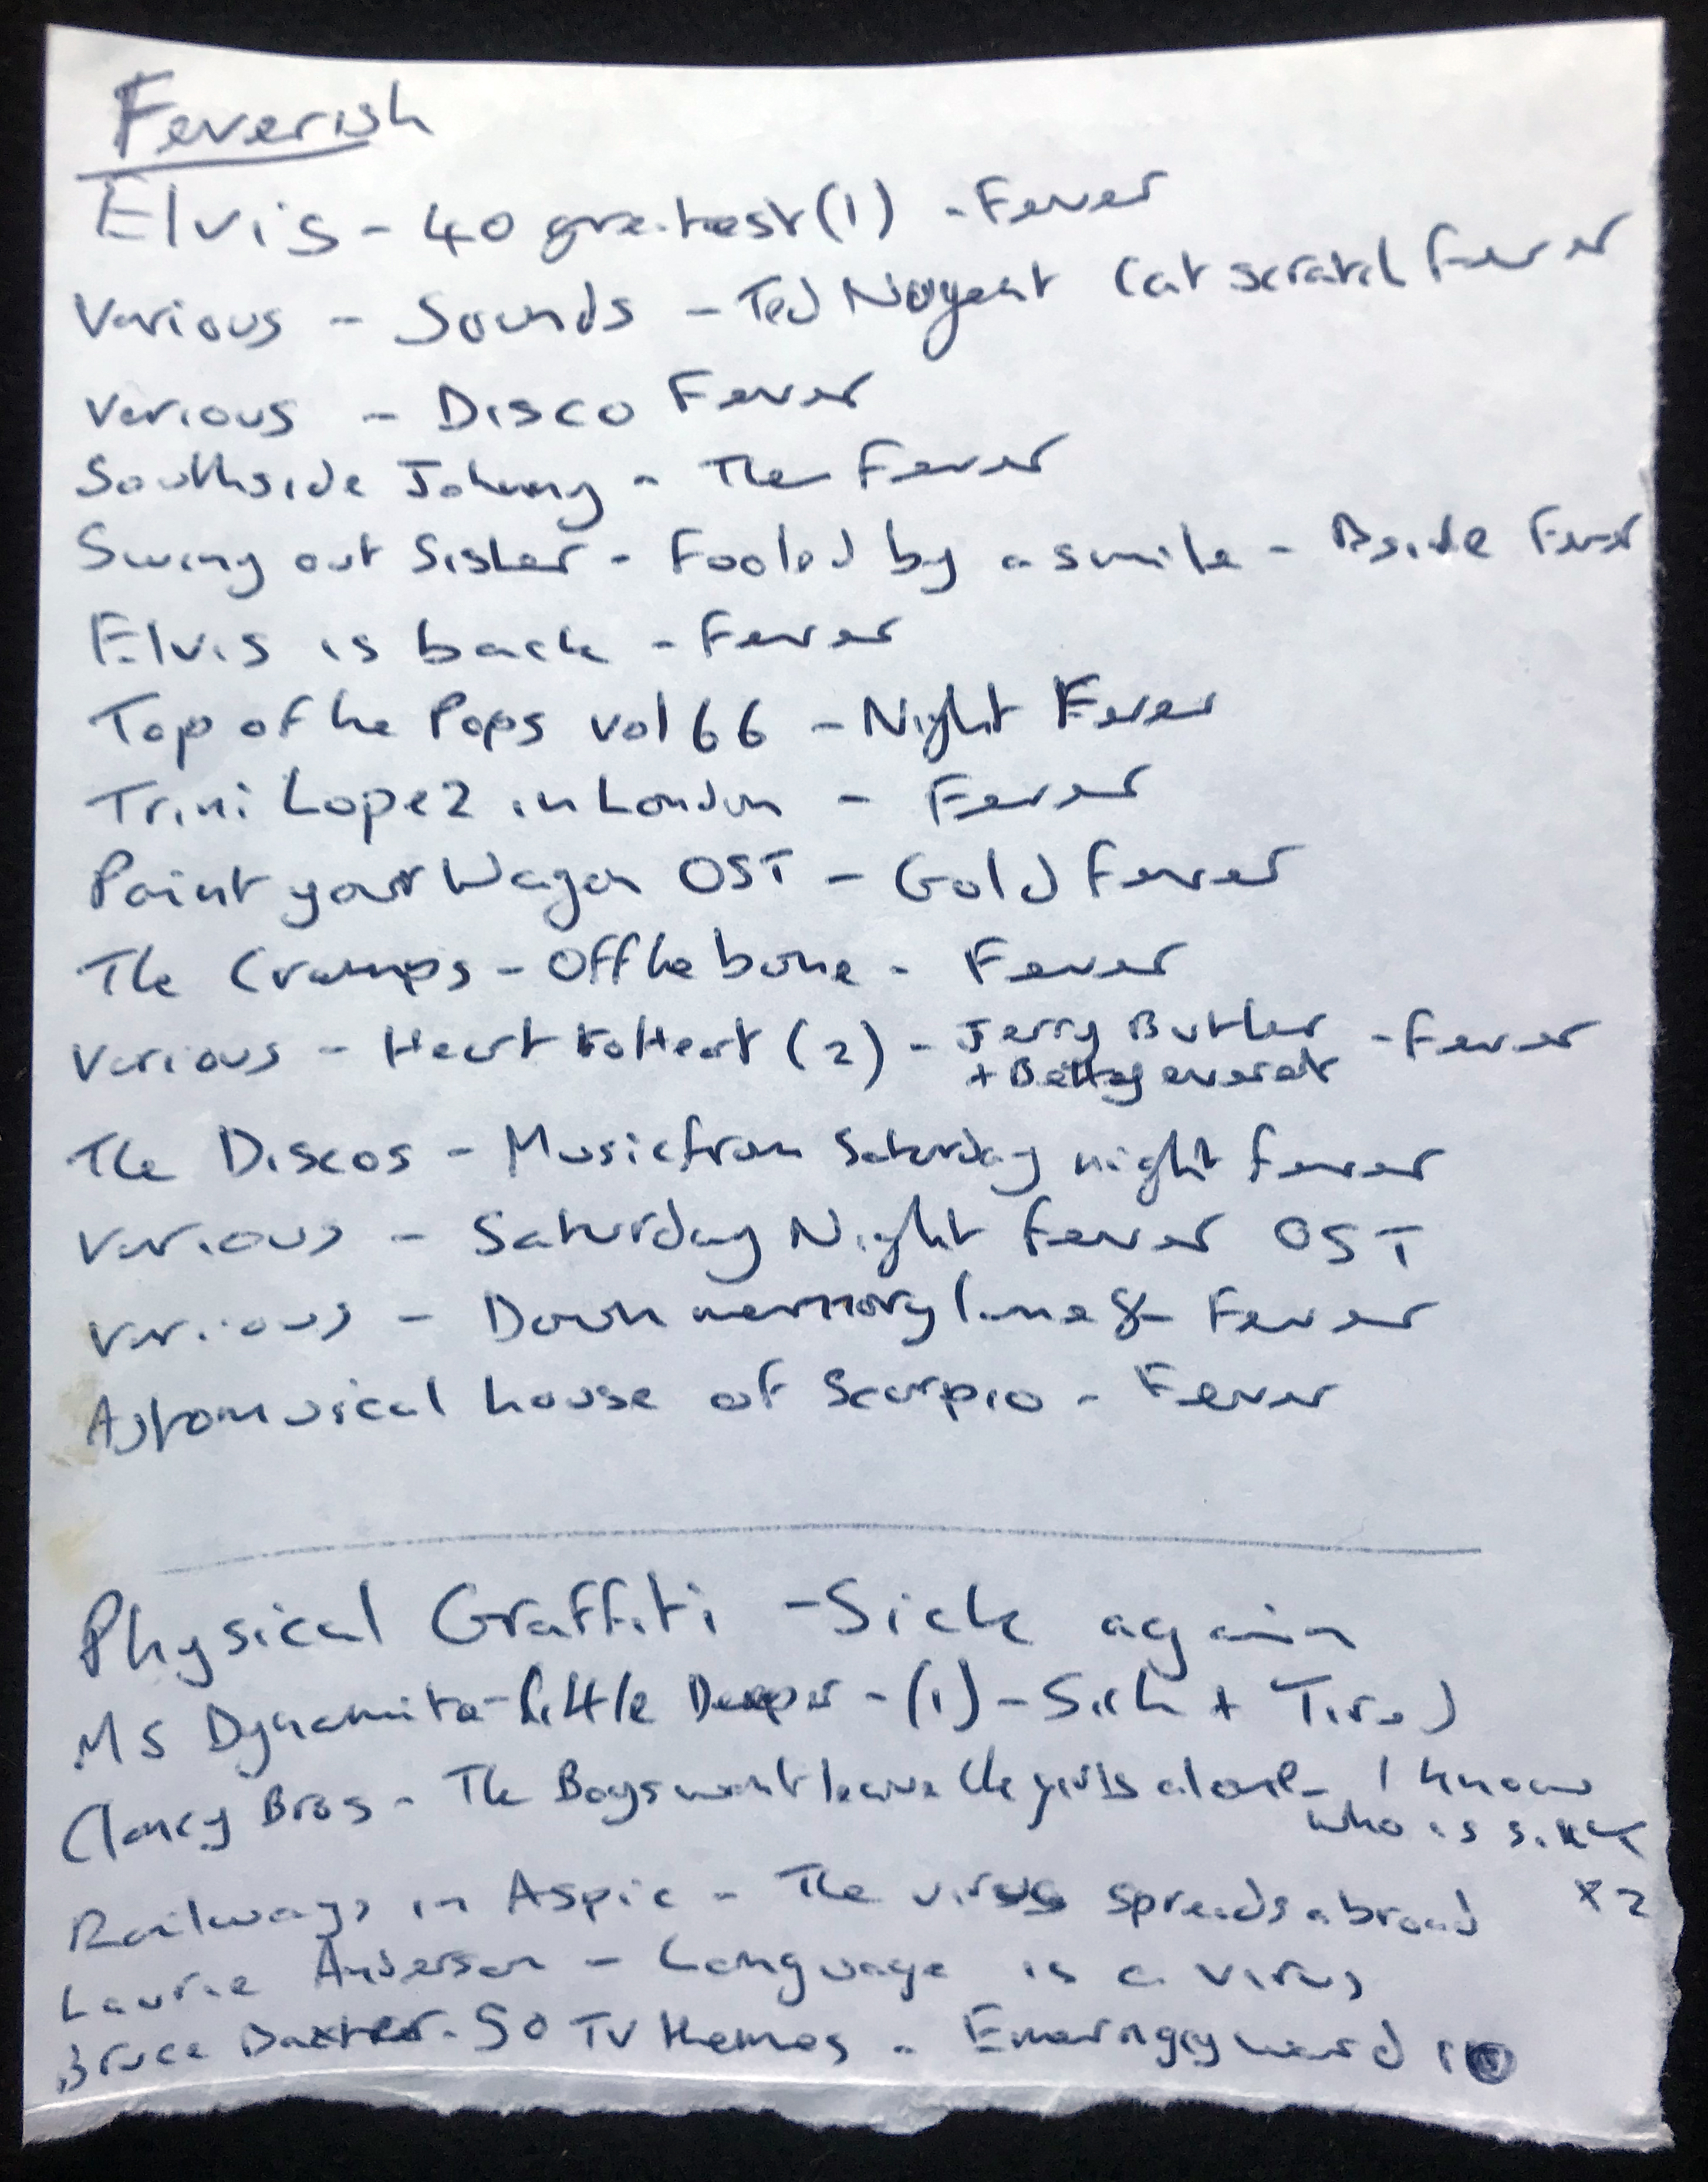 Feverish
Elvis - 40 greatest (1) - Fever
Various - Sounds - Ted Nugent Cat scratch fever
Various - Disco Fever
Southside Johnny - The Fever
Swing out Sister - Fooled by a smile - Bside Fever
Elvis is back - Fever
Top of the Pops vol 66 - Night Fever
Trini Lopez in London - Fever
Paint your Wagon OST - Gold fever
The Cramps - Off the bone - Fever
Various - Heart to Heart (2) - Jerry Butler - Fever
+ Betty everett
The Discos - Music from Saturday night fever
Various - Saturday Night fever OST
Various - Down memory lane 8 - Fever
Astromusical house of Scorpio - Fever
Physical Graffiti - Sick again
Ms Dynamite - Little Deeper - (1) - Sick + Tired
Clancy Bros - The Boys wont leave the girls alone - I know
who is sick
Railways in Aspic - The virus spreads abroad x2
Laurie Anderson - Language is a virus
Bruce Baxter - 50 TV themes - Emerngcy ward